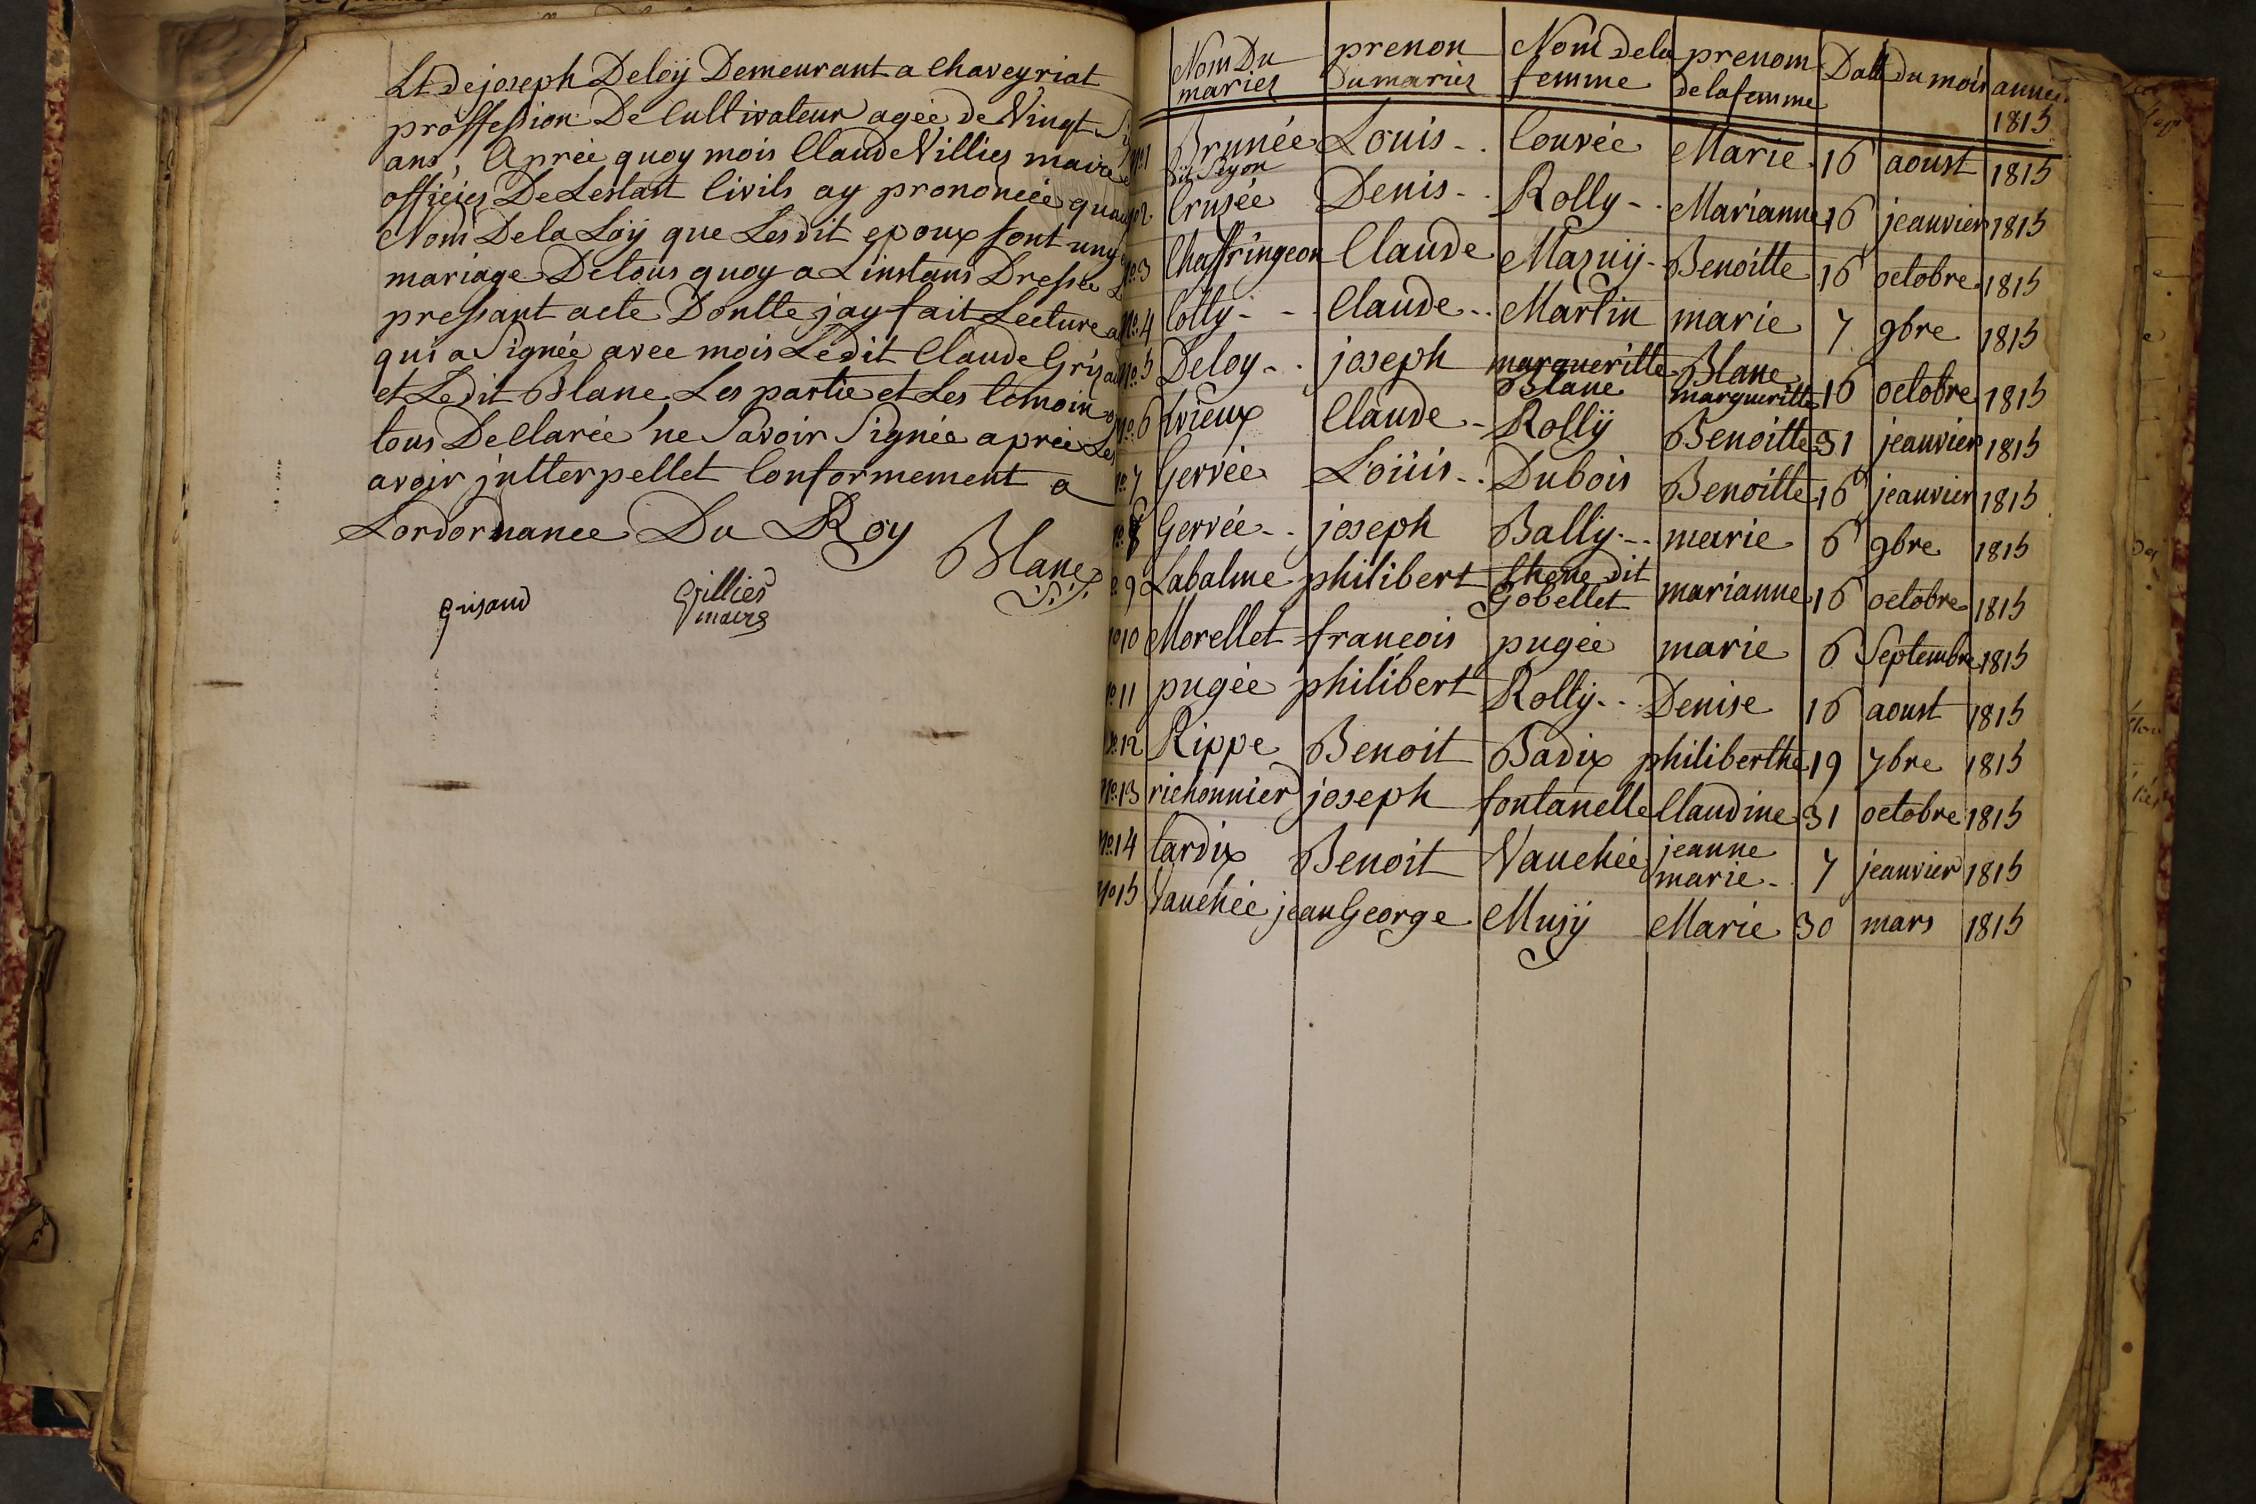 Et de joseph Deloÿ Demeurant a Chaveyriat
proffession De Cultivateur agée de Vingt
ans, Aprée quoy mois Claude Villiez maire
officiez De Lestatt Civils ay prononcée quau
Nom De la Loÿ que Lesdit epoux sont uny
mariage De tous quoy a Linstans Dressée
pressant acte Dontte jay fait Lecture a
qui a Signée avec mois Ledit Claude Grisaud
et Ledit Blanc, Les partie et Les temoin
tous Declarée ne Savoir Signée aprée Les
avoir jntterpellet Conformement a
Lordornance Du Roy
Blanc
grisaud Villiés
maire
Nom Du mariez prenon Du mariez Nom de la femme prenom de la femme Datte du mois année 1815
No 1 Brunée dit Peyon Louis Couvée Marie 16 aoust 1815
No 2 Crusée Denis Rolly Marianne 16 jeanvier 1815
No 3 Chaffringeon Claude Mazuÿ Benoitte 16 octobre 1815
No 4 Colty Claude Martin marie 7 9bre 1815
No 5 Deloy joseph marqueritte Blanc Blanc margueritte 16 octobre 1815
No 6 Claude Rollÿ Benoitte 31 jeanvier 1815
No 7 Gervée Loüis Dubois Benoitte 16 jeanvier 1815
No 8 Gervée joseph Bally marie 6 9bre 1815
No 9 Labalme philibert Chene dit Gobellet marianne 16 octobre 1815
No 10 Morellet francois pugée marie 6 Septembre 1815
No 11 pugée philibert Rolly Denise 16 aoust 1815
No 12 Rippe Benoit Badix philiberthe 19 7bre 1815
No 13 richonnier joseph fontanelle Claudine 31 octobre 1815
No 14 tardix Benoit Vauchée jeanne marie 7 jeanvier 1815
No 15 Vauchée jean George Musÿ Marie 30 mars 1815